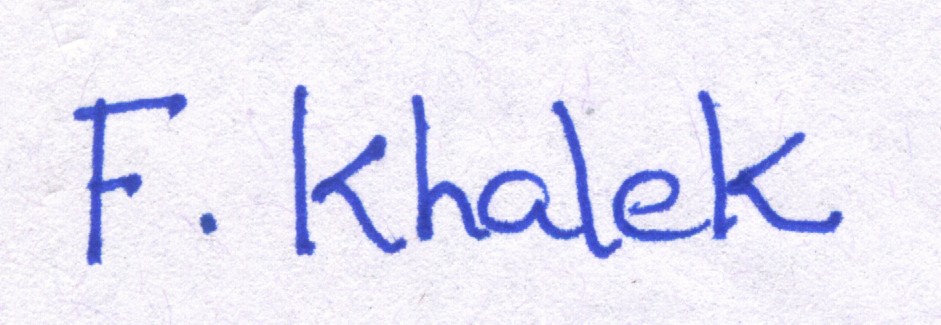 F. Khalek